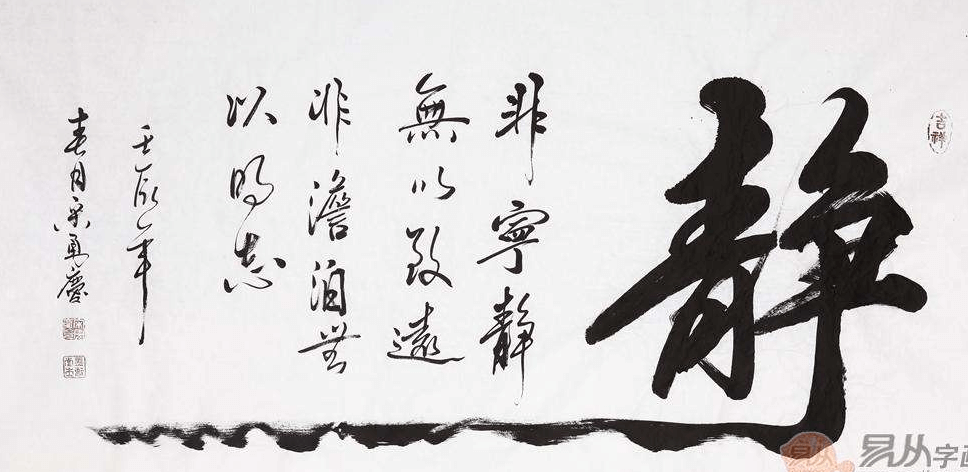 吉祥
静
非寧静
無以致遠
非澹泊無
以明志
壬辰年
春月勇慶
易从字画